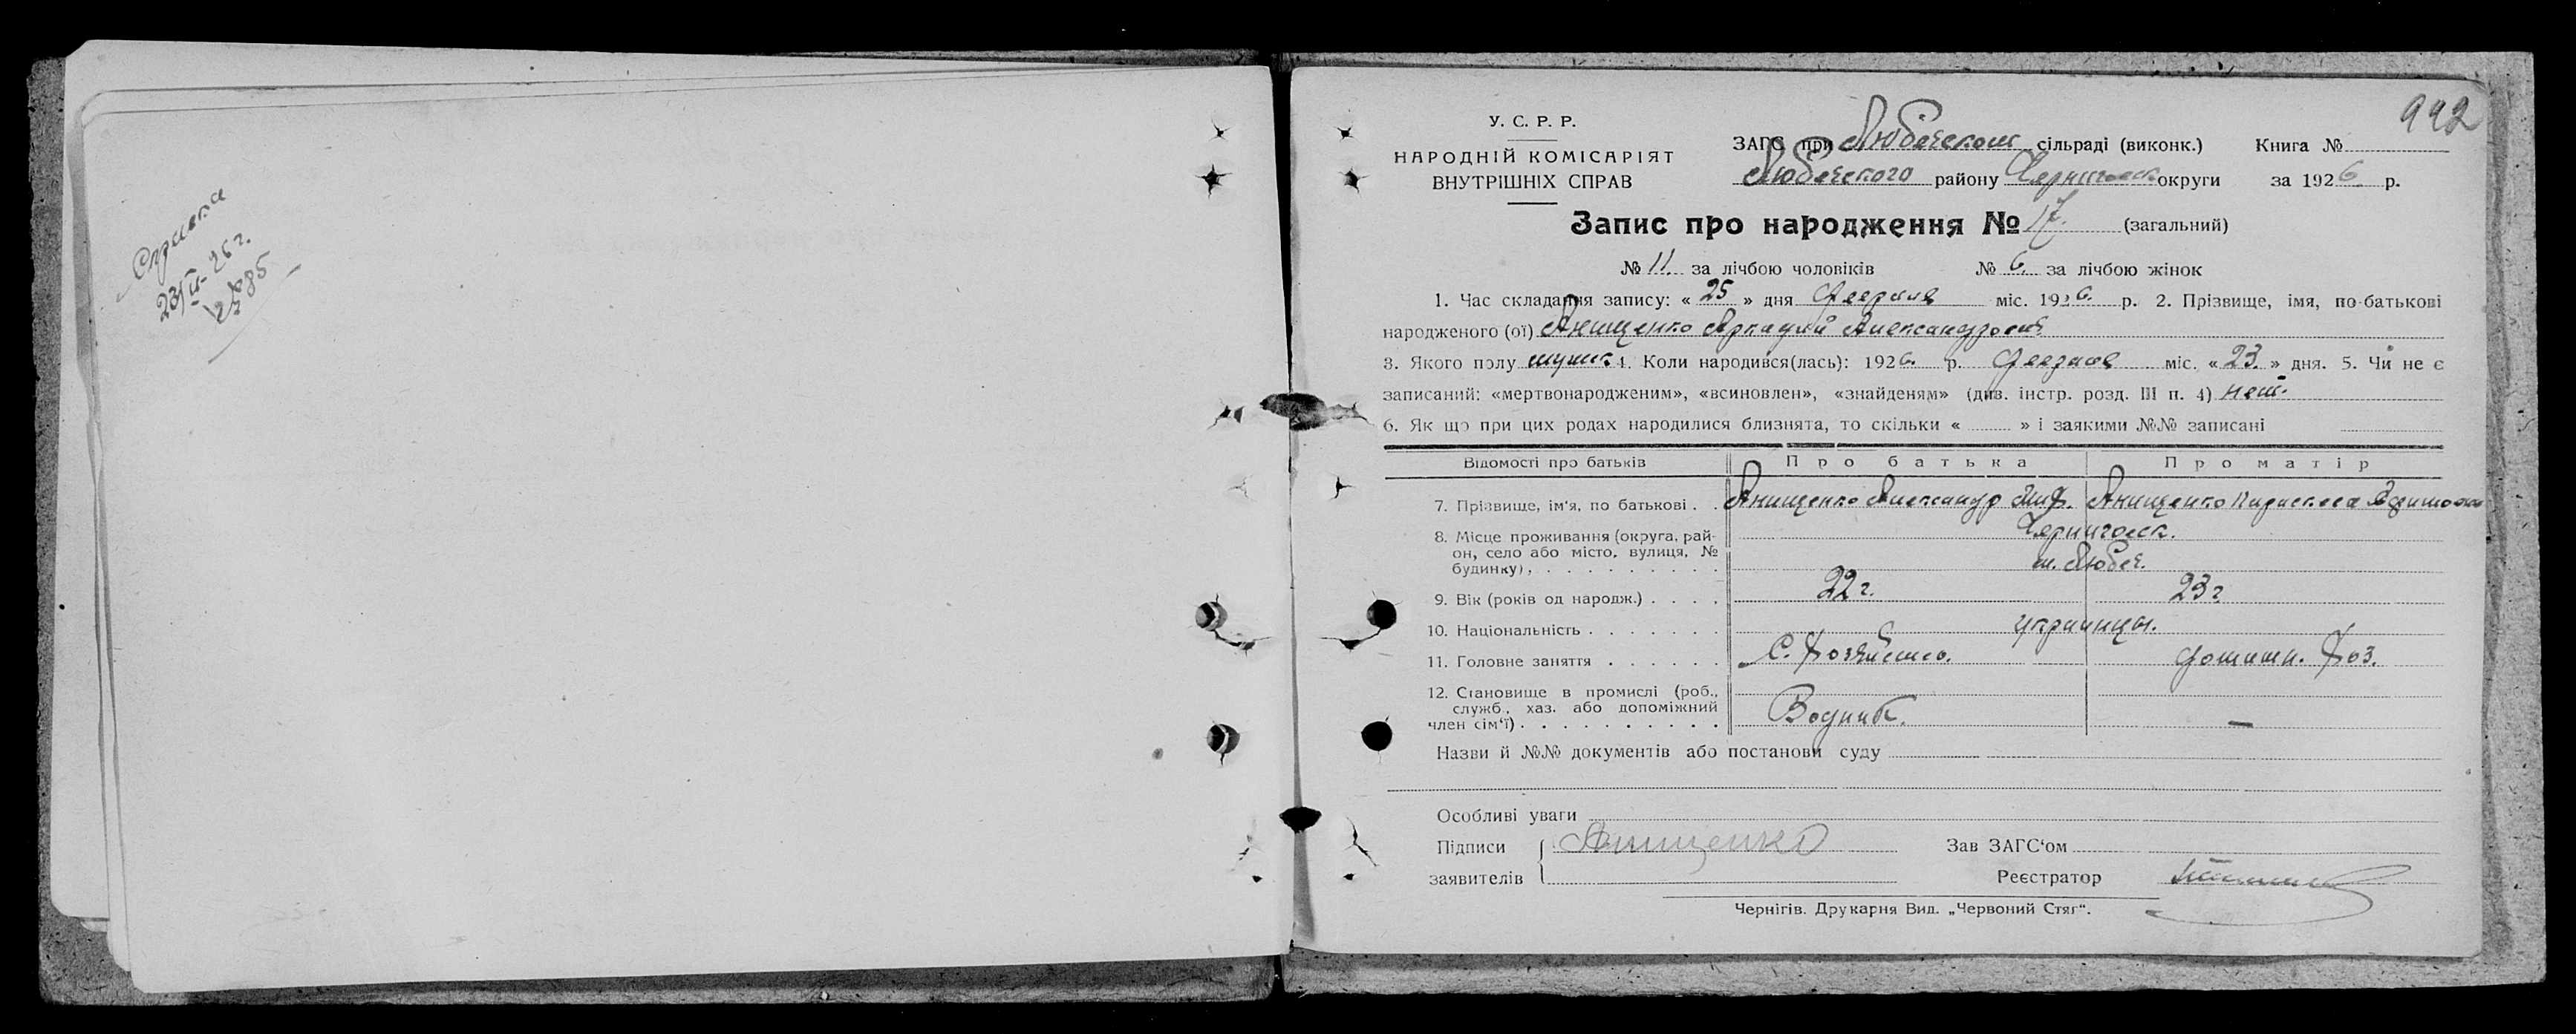 Справка
23/II-26 г.
№ 85
992
У. С. Р. Р.
НАРОДНІЙ КОМІСАРІЯТ
ВНУТРІШНІХ СПРАВ
ЗАГС при Любечском сільраді (виконк.) Книга №
Любечского району Черниговск округи за 1926 р.
Запис про народження № 17 (загальний)
№ 11. за лічбою чоловіків № 6. за лічбою жінок
1. Час складання запису: « 25 » дня февраля міс. 1926. р. 2. Прізвище, імя, по-батькові
народженого (ої) Анищенко Аркадий Александрович
3. Якого полу мужск. 4. Коли народився(лась): 1926. р. февраля міс. « 23. » дня. 5. Чи не є
записаний: «мертвонародженим», «всиновлен», «знайденям» (див. інстр. розд. III п. 4) нет.
6. Як що при цих родах народилися близнята, то скільки « » і заякими №№ записані
Відомості про батьків Про батька Про матір
7. Прізвище, ім'я, по батькові . . Анищенко Александр Миф. Анищенко Параскева
8. Місце проживання (округа, рай- Черниговск.
он, село або місто, вулиця, №
будинку), . . . . . . . . . м. Любеч.
9. Вік (років од народж.) . . . . 22 г. 23 г
10. Національність . . . . . . . украинцы.
11. Головне заняття . . . . . . С. Хозяйство. домашн. Хоз.
12. Становище в промислі (роб.,
служб., хаз. або допоміжний
член сім'ї) . . . . . . . . . . Водник. —
Назви й №№ документів або постанови суду
Особливі уваги
Підписи Анищенко Зав ЗАГС'ом
заявителів Реєстратор
Чернігів. Друкарня Вид. „Червоний Стяг".